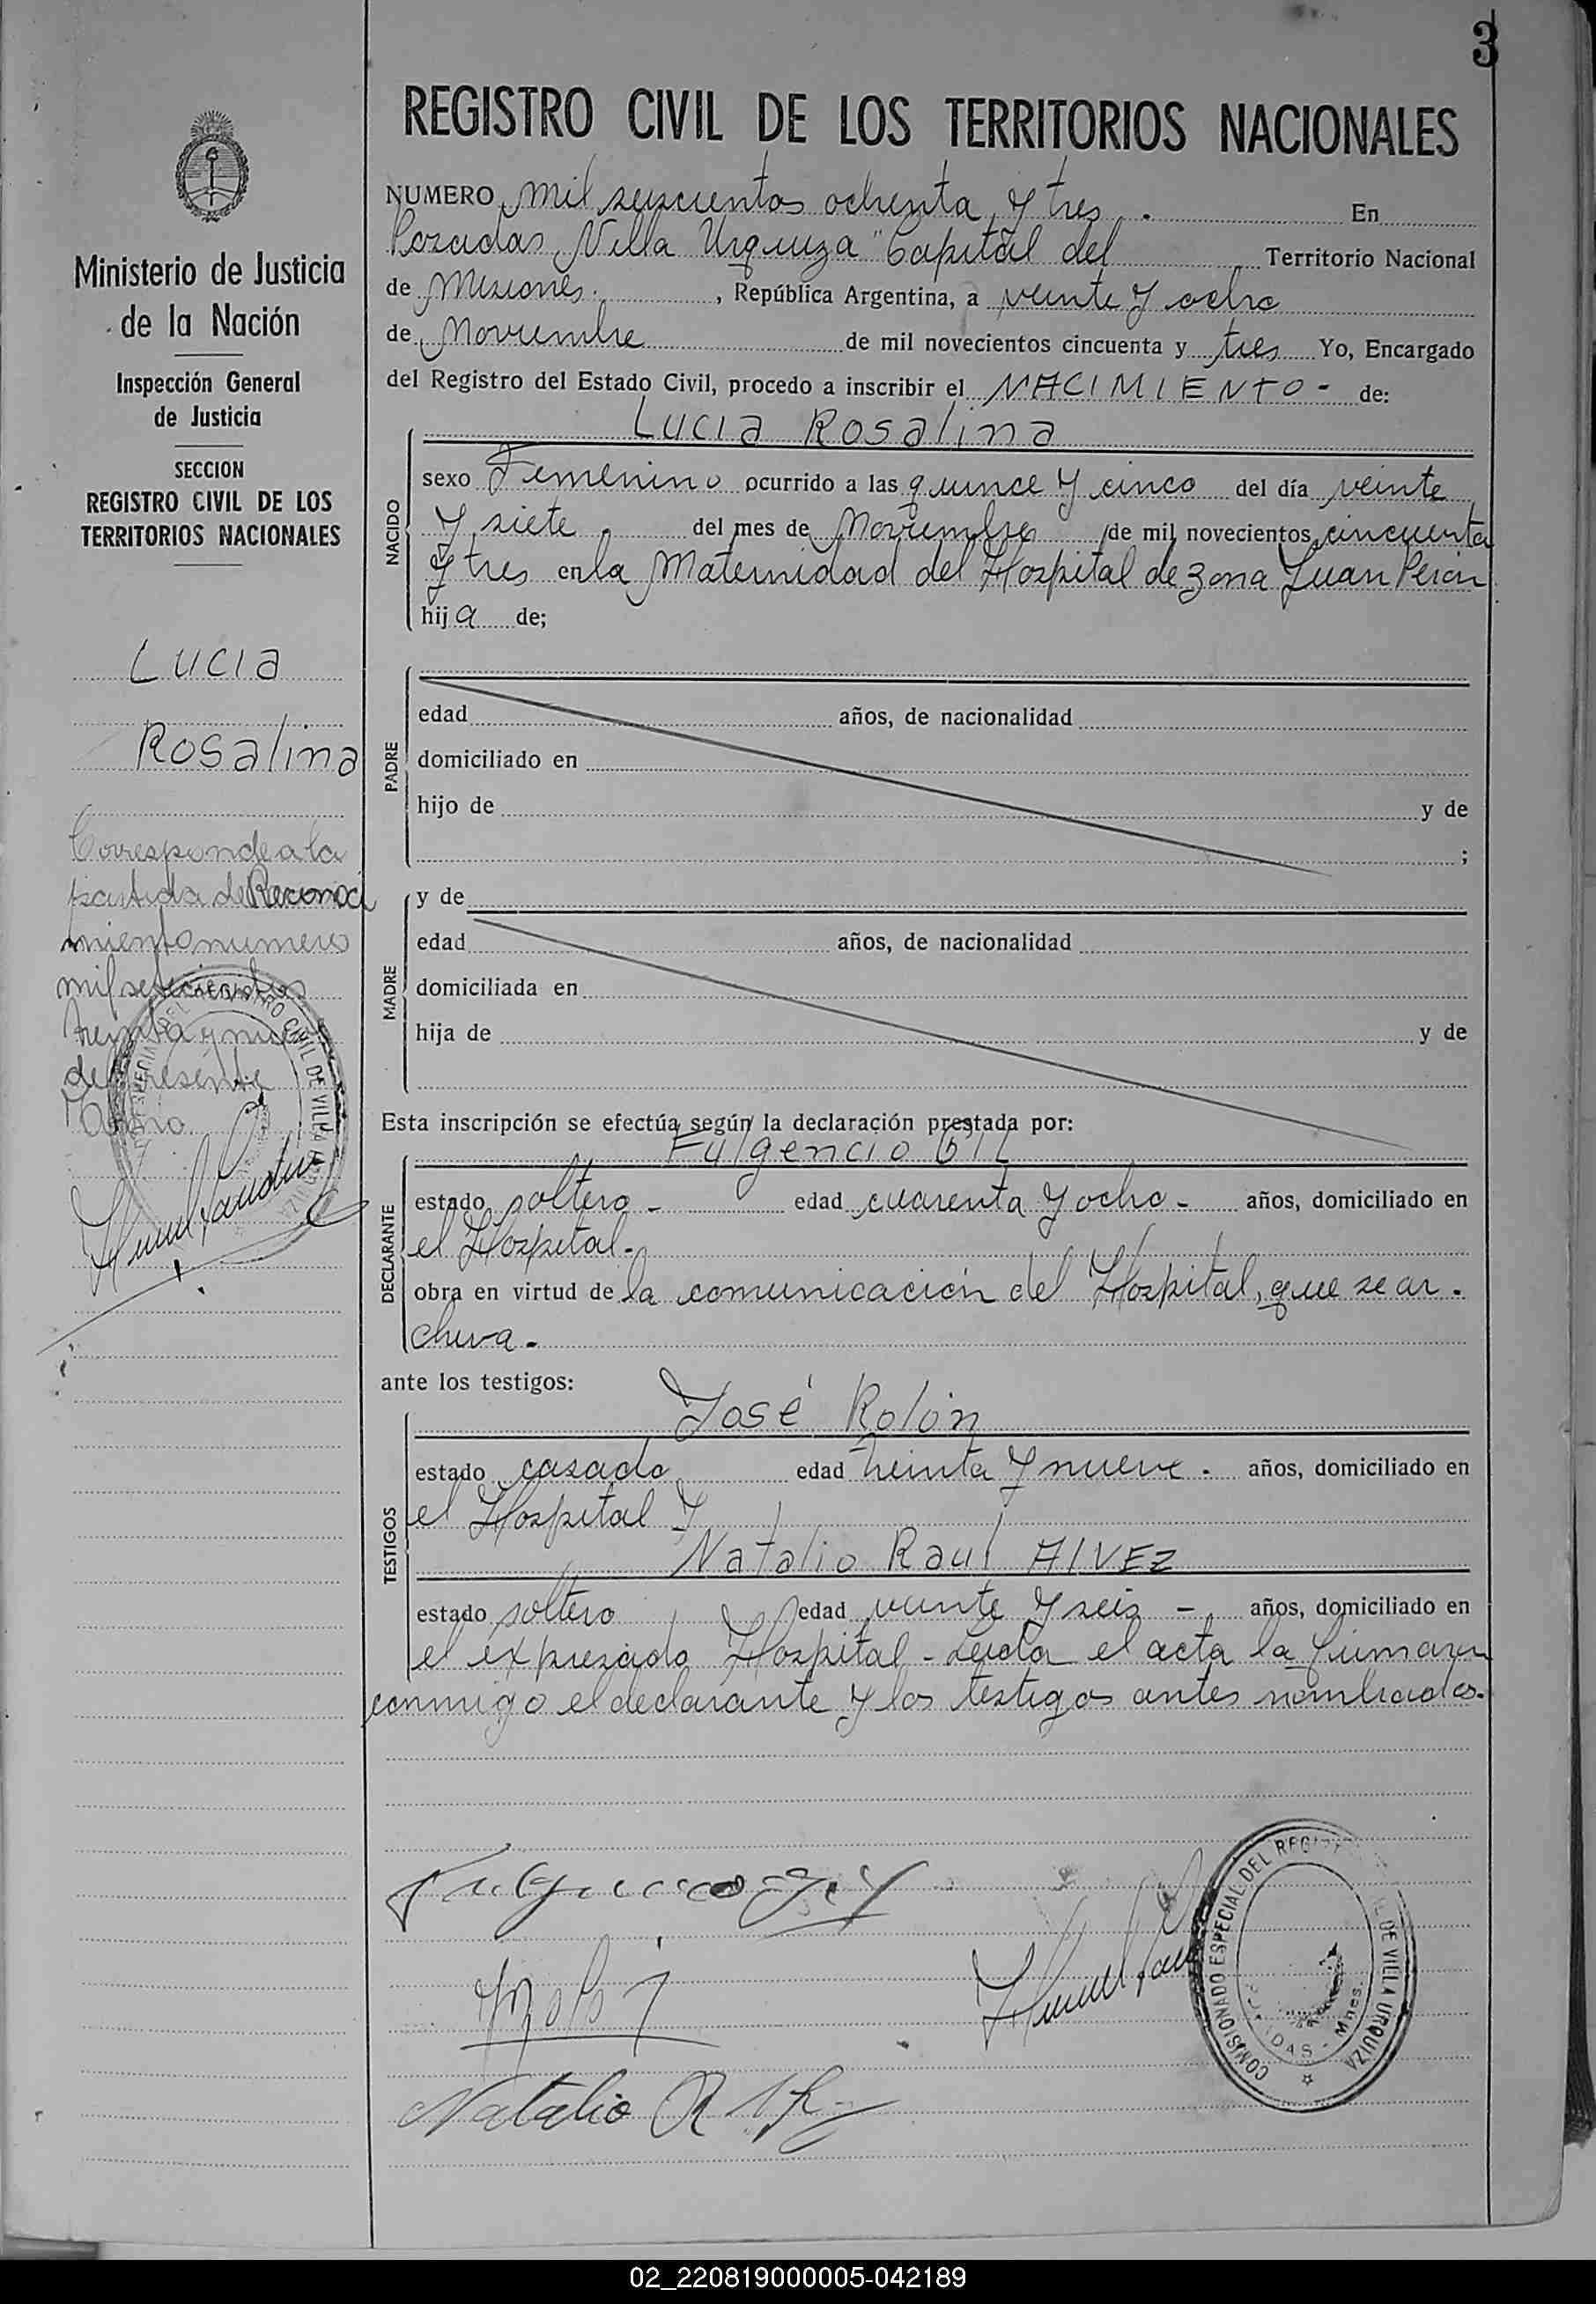 3
REGISTRO CIVIL DE LOS TERRITORIOS NACIONALES
Ministerio de Justicia
de la Nación
Inspección General
de Justicia
SECCION
REGISTRO CIVIL DE LOS
TERRITORIOS NACIONALES
Lucia
Rosalina
Corresponde a la
partida de Reconoci
miento numero
mil setecientos
treinta y nueve
del presente
Tomo
NUMERO mil seiscientos ochenta y tres . En
Posadas "Villa Urquiza" Capital del Territorio Nacional
de Misiones. , República Argentina, a veinte y ocho
de Noviembre de mil novecientos cincuenta y tres Yo, Encargado
del Registro del Estado Civil, procedo a inscribir el NACIMIENTO - de:
Lucia Rosalina
NACIDO
sexo Femenino ocurrido a las quince y cinco del día veinte
y siete del mes de Noviembre de mil novecientos cincuenta
y tres en la Maternidad del Hospital de Zona Juan Peron
hija de;
PADRE
edad años, de nacionalidad
domiciliado en
hijo de y de
;
MADRE
y de
edad años, de nacionalidad
domiciliada en
hija de y de
Esta inscripción se efectúa según la declaración prestada por:
Fulgencio Gil
DECLARANTE
estado soltero - edad cuarenta y ocho - años, domiciliado en
el Hospital.
obra en virtud de la comunicación del Hospital, que se ar -
chiva -
ante los testigos:
José Rolón
TESTIGOS
estado casado edad treinta y nueve . años, domiciliado en
el Hospital y
Natalio Raul AlVEZ
estado soltero edad veinte y seis - años, domiciliado en
el expresado Hospital - Leida el acta la firmaron
conmigo el declarante y los testigos antes nombrados.
Fulgencio Gil
Natalio R
COMISIONADO ESPECIAL DEL REGISTRO CIVIL DE VILLA URQUIZA
POSADAS - Mnes.
02_220819000005-042189